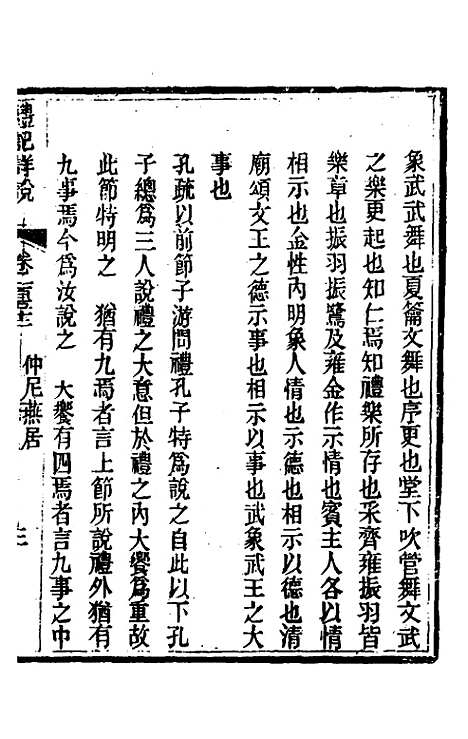 象武武舞也夏籥文舞也序更也堂下吹管舞文武
之樂更起也知仁焉知禮樂所存也采齊雍振羽皆
樂章也振羽振鷺及雍金作示情也賓主人各以情
相示也金性內明象人情也示德也相示以德也清
廟頌文王之德示事也相示以事也武象武王之大
事也
孔疏以前節子游問禮孔子特爲說之自此以下孔
子總爲三人說禮之大意但於禮之內大饗爲重故
此節特明之　猶有九焉者言上節所說禮外猶有
九事焉今爲汝說之　大饗有四焉者言九事之中
禮記詳說　卷一百三　仲尼燕居